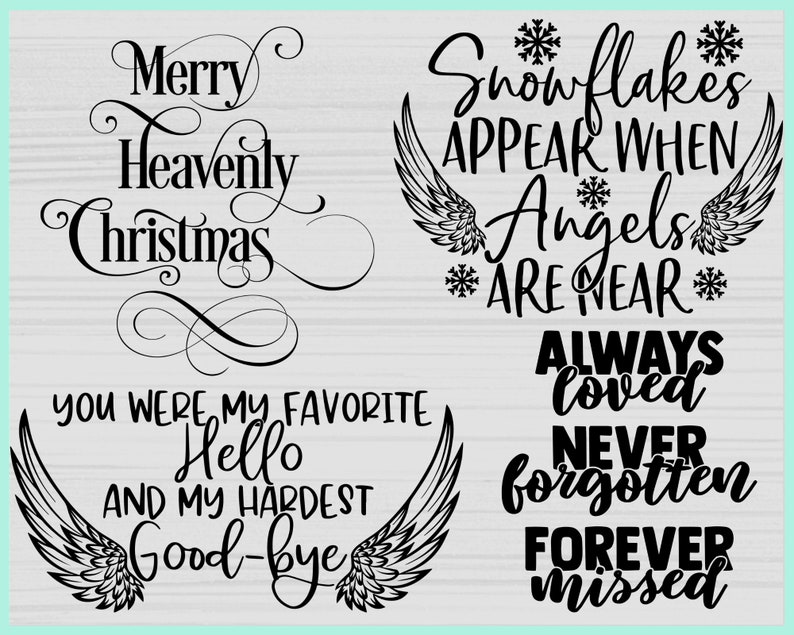 Merry
Heavenly
Christmas
Snowflakes
APPEAR WHEN
Angels
ARE NEAR
YOU WERE MY FAVORITE
Hello
AND MY HARDEST
Good-bye
ALWAYS
loved
NEVER
forgotten
FOREVER
missed